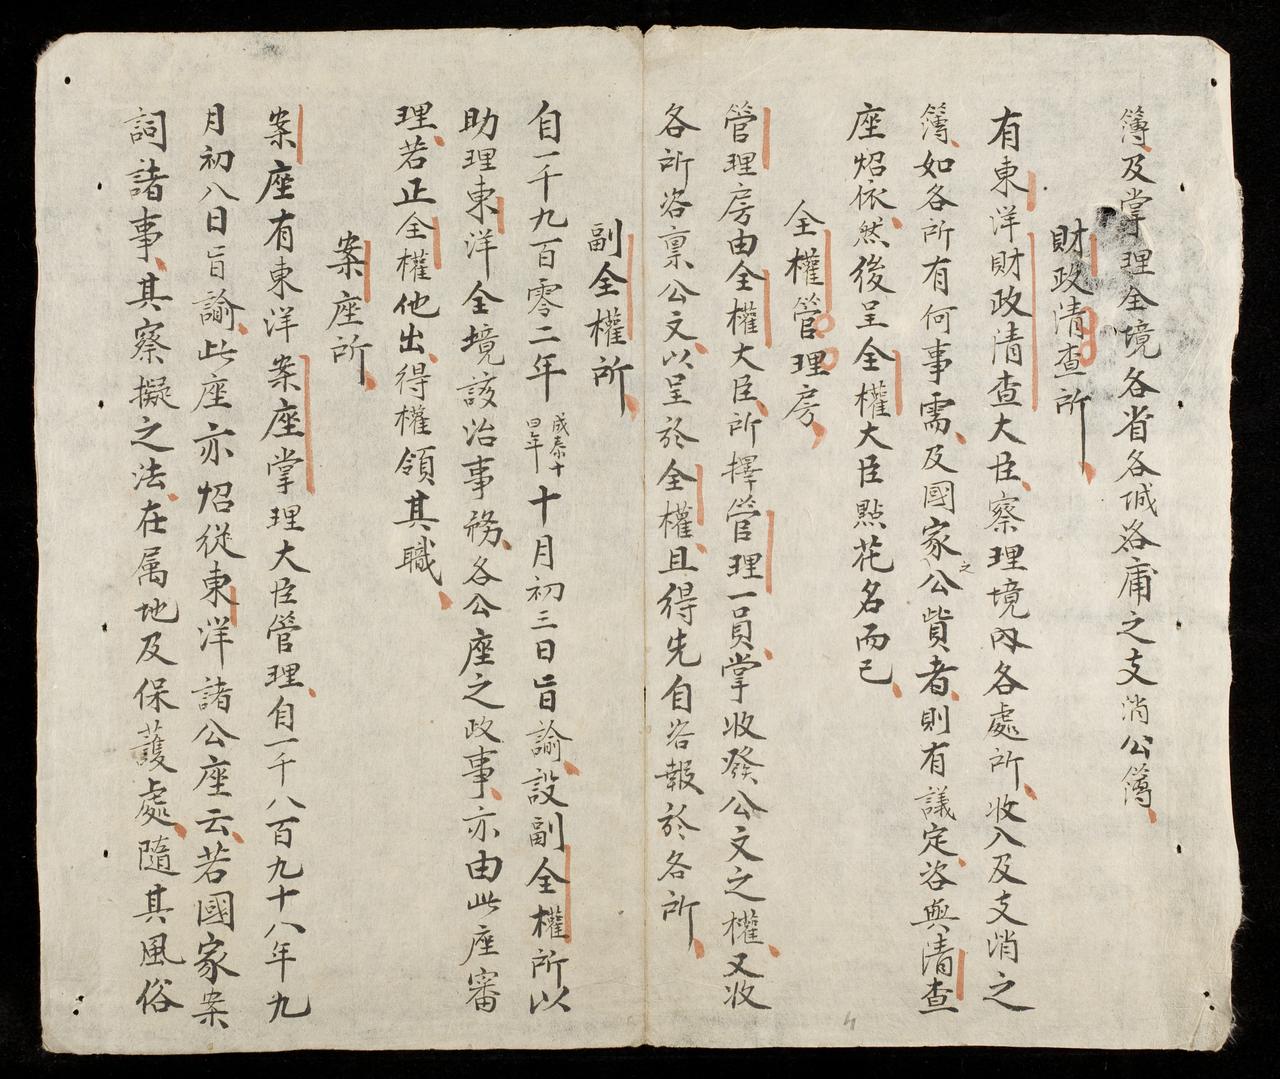 簿及掌理全境各省各城洛庸之支消公簿
財政清查所
有東洋財政清查大臣察理境內各處所收入及支消之
簿如各所有何事需及國家之公貲者則有議定咨與清查
座炤依然後呈全權大臣點花名而已
全權管理房
管理房由全權大臣所擇管理一員掌收發公文之權又收
各所咨稟公文以呈於全權且得先自咨報於各所
副全權所
自一千九百零二年成泰十四年十月初三日旨諭設副全權所以
助理東洋全境該治事務各公座之政事亦由此座審
理若正全權他出得權領其職
案座所
案座有東洋案座掌理大臣管理自一千八百九十八年九
月初八日旨諭此座亦炤從東洋諸公座云若國家案
詞諸事其察擬之法在属地及保護處隨其風俗